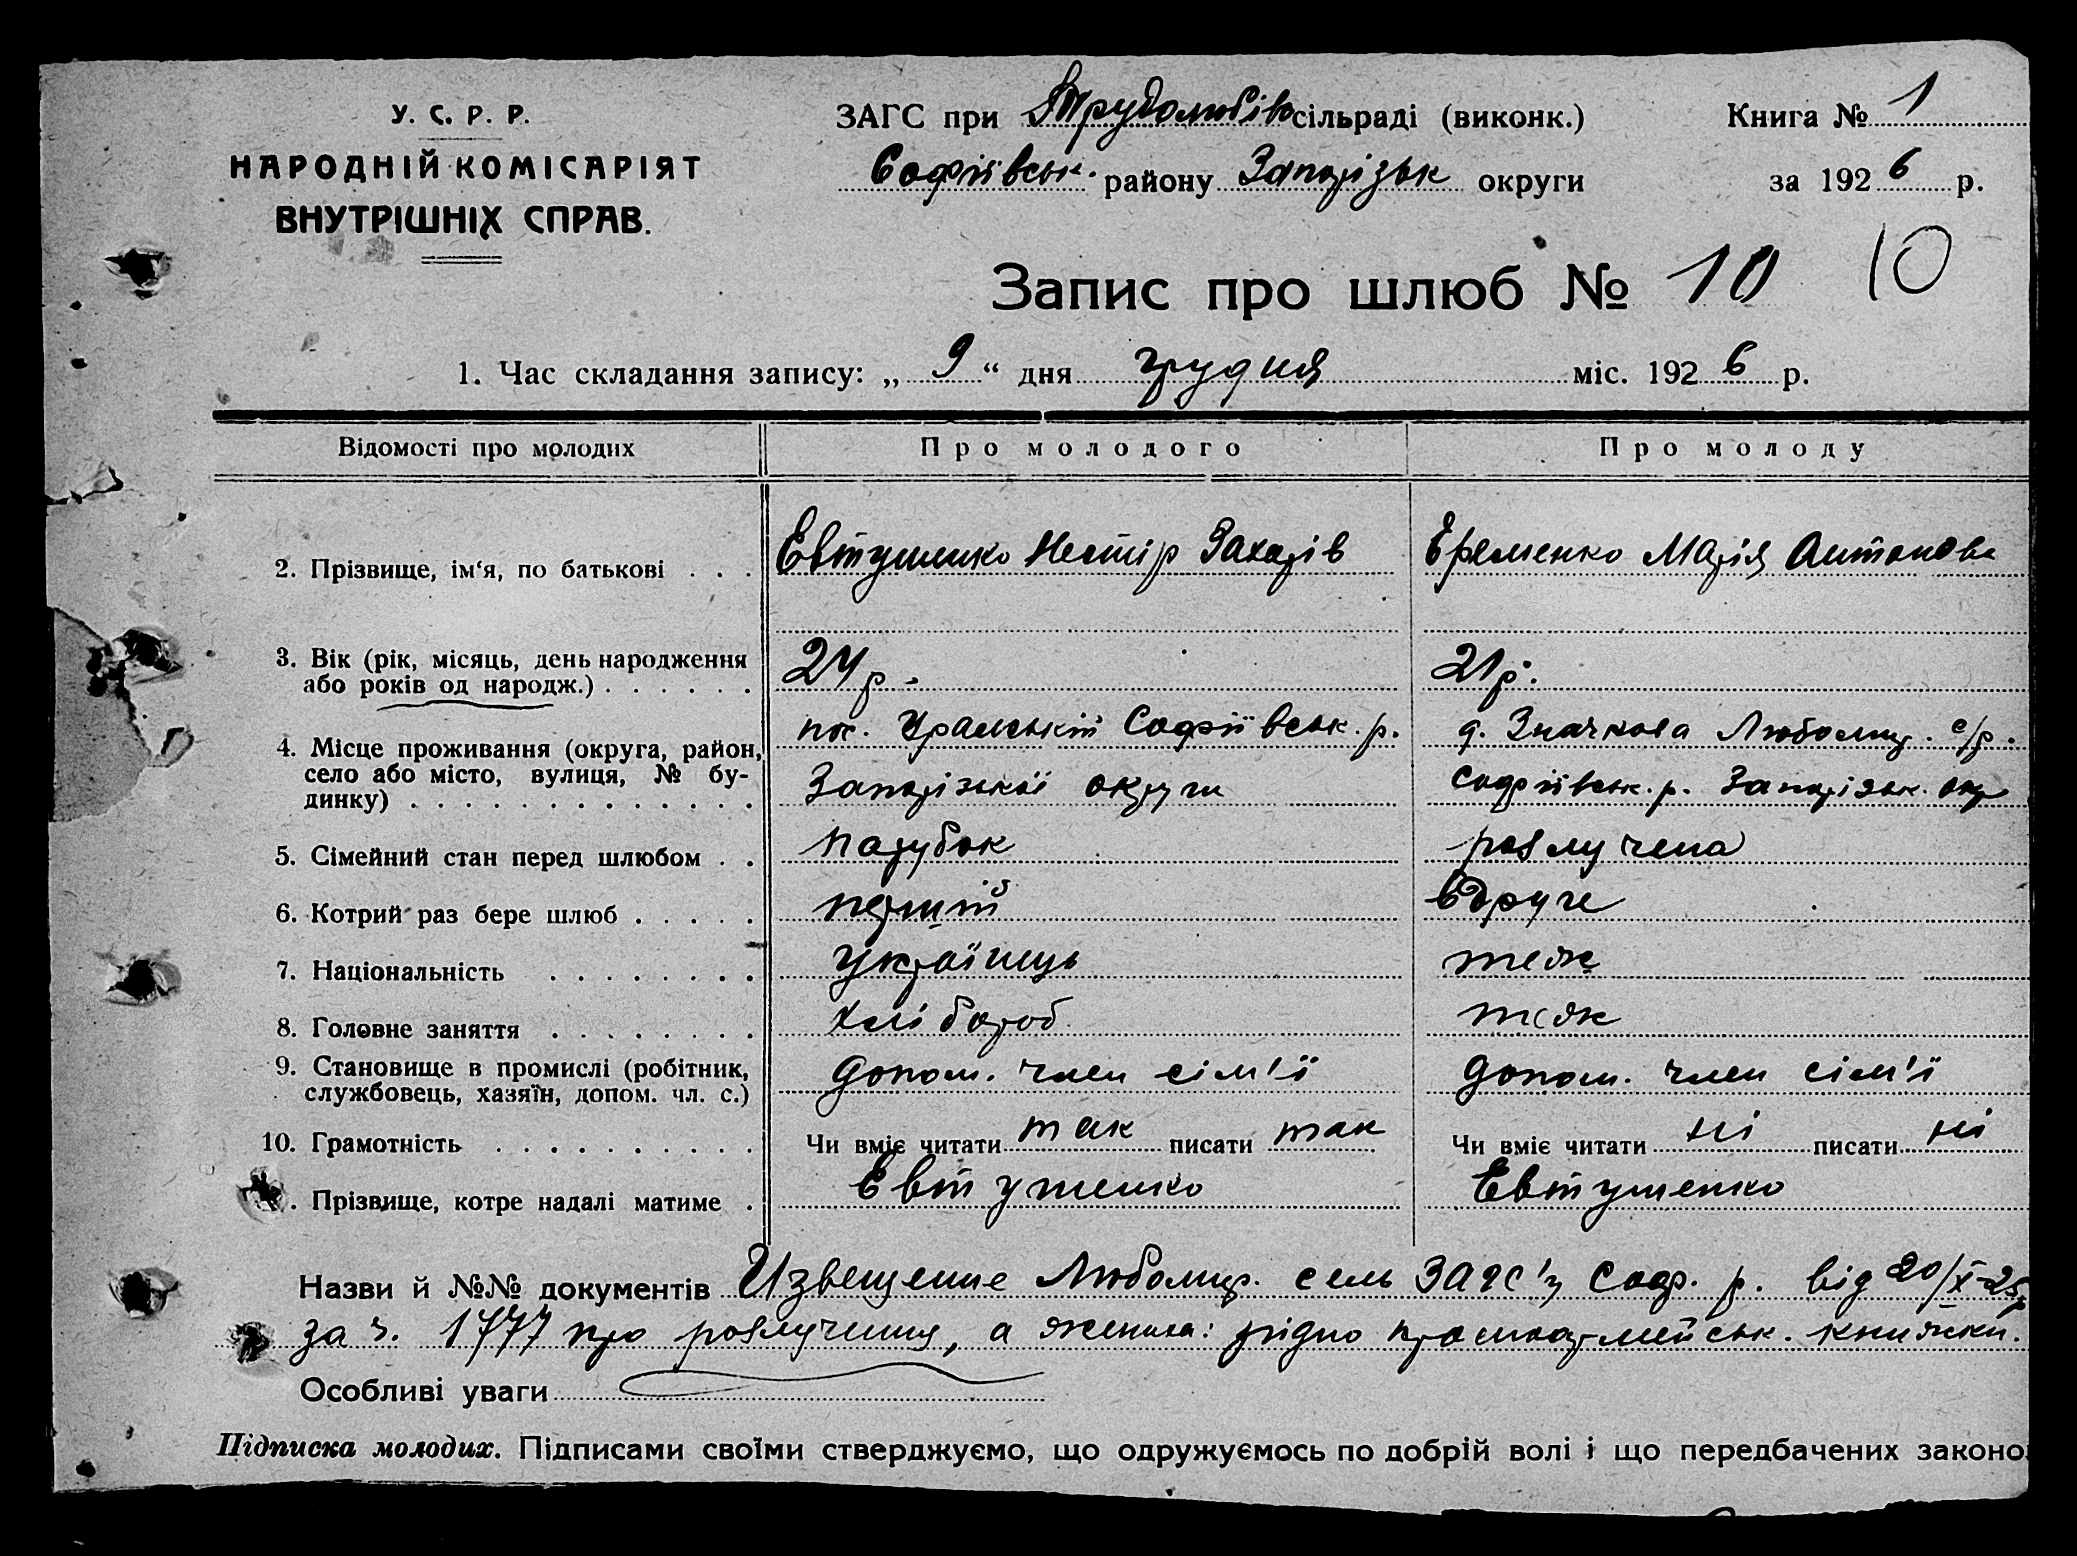 У. С. Р. Р.
НАРОДНІЙ КОМІСАРІЯТ
ВНУТРІШНІХ СПРАВ.
ЗАГС при Трудолюбів сільраді (виконк.)
Софіївськ. району Запорізьк округи
Книга № 1
за 1926 р.
Запис про шлюб № 10 10
1. Час складання запису: „ 9 “ дня грудня міс. 1926 р.
Відомості про молодих Про молодого Про молоду
2. Прізвище, ім‘я, по батькові . . . Евтушенко Нестір Захарів Єременко Марія Антонова
3. Вік (рік, місяць, день народження
або років од народж.) . . . . . . 24 р. 21 р.
4. Місце проживання (округа, район,
село або місто, вулиця, № бу-
динку) . . . . . . . . . . . . .
пос. Уральскій Софіївськ. р.
Запорізької округи
д. Значкова Любомир. с/р.
Софіївськ. р. Запорізьк. окр
5. Сімейний стан перед шлюбом . . парубок розлучена
6. Котрий раз бере шлюб . . . . . перший вдруге
7. Національність . . . . . . . . українець теж
8. Головне заняття . . . . . . . . хлібороб теж
9. Становище в промислі (робітник,
службовець, хазяїн, допом. чл. с.) допом. член сім'ї допом. член сім'ї
10. Грамотність . . . . . . . . . . Чи вміє читати так писати так Чи вміє читати ні писати ні
. Прізвище, котре надалі матиме . Евтушенко Евтушенко
Назви й №№ документів Извещение Любомир. сель ЗАГС'у Соф. р. від 20/X-25р
за ч. 1777 про розлучення, а жениха: рідно красноармейськ. книжки.
Особливі уваги
Підписка молодих. Підписами своїми стверджуємо, що одружуємось по добрій волі і що передбачених законо